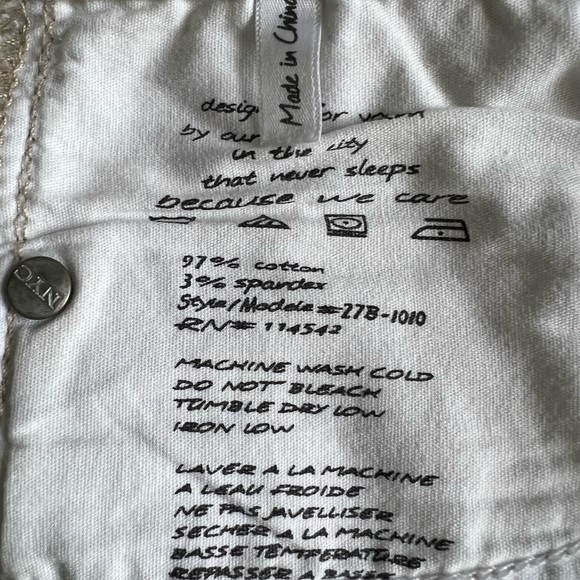 Made in China
by our
in the city
that never sleeps
because we care
97% cotton
3% spandex
Style/Modele#27B-1010
RN# 114542
MACHINE WASH COLD
DO NOT BLEACH
TUMBLE DRY LOW
IRON LOW
LAVER A LA MACHINE
A LEAU FROIDE
NE PAS JAVELLISER
SECHER A LA MACHINE
BASSE TEMPERATURE
REPASSER A BASSE
NYC